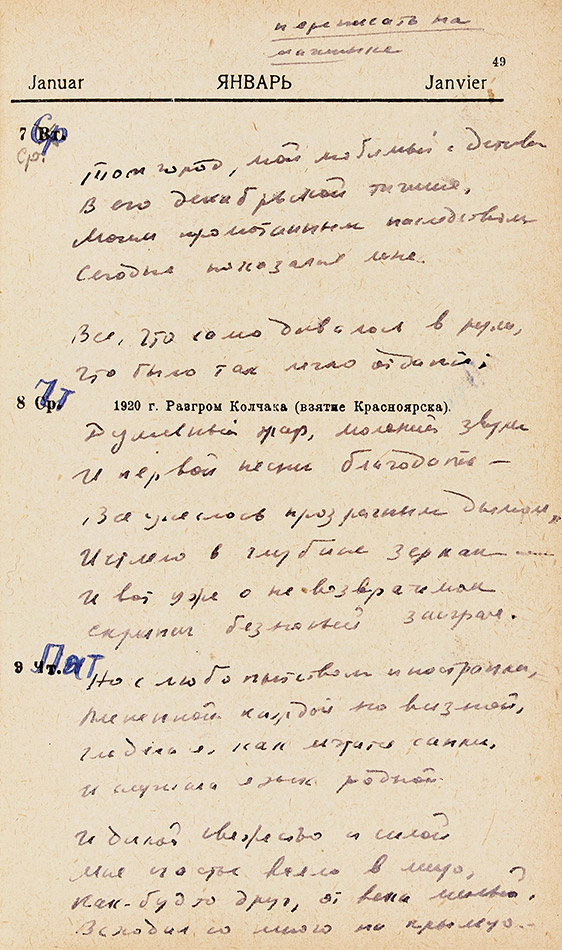 переписать на
машинке
49
Januar ЯНВАРЬ Janvier
7 Вт. Ср
Ср.
Тот город, мой любимый с детства
В его декабрьской тишине,
Моим промотанным наследством
Сегодня показался мне.
Все, что само давалось в руки,
Что было так легко отдать:
8 Ср. Чт
1920 г. Разгром Колчака (взятие Красноярска).
Душевный жар, молений звуки
И первой песни благодать —
Все унеслось прозрачным дымом,
Истлело в глубине зеркал —
И вот уж о невозвратимом
Скрипач безносый заиграл.
9 Чт. Пят
Но с любопытством иностранки,
Плененной каждой новизной,
Глядела я, как мчатся санки,
И слушала язык родной.
И дикой свежестью и силой
Мне счастье веяло в лицо,
Как-будто друг, от века милый,
Всходил со мною на крыльцо. —